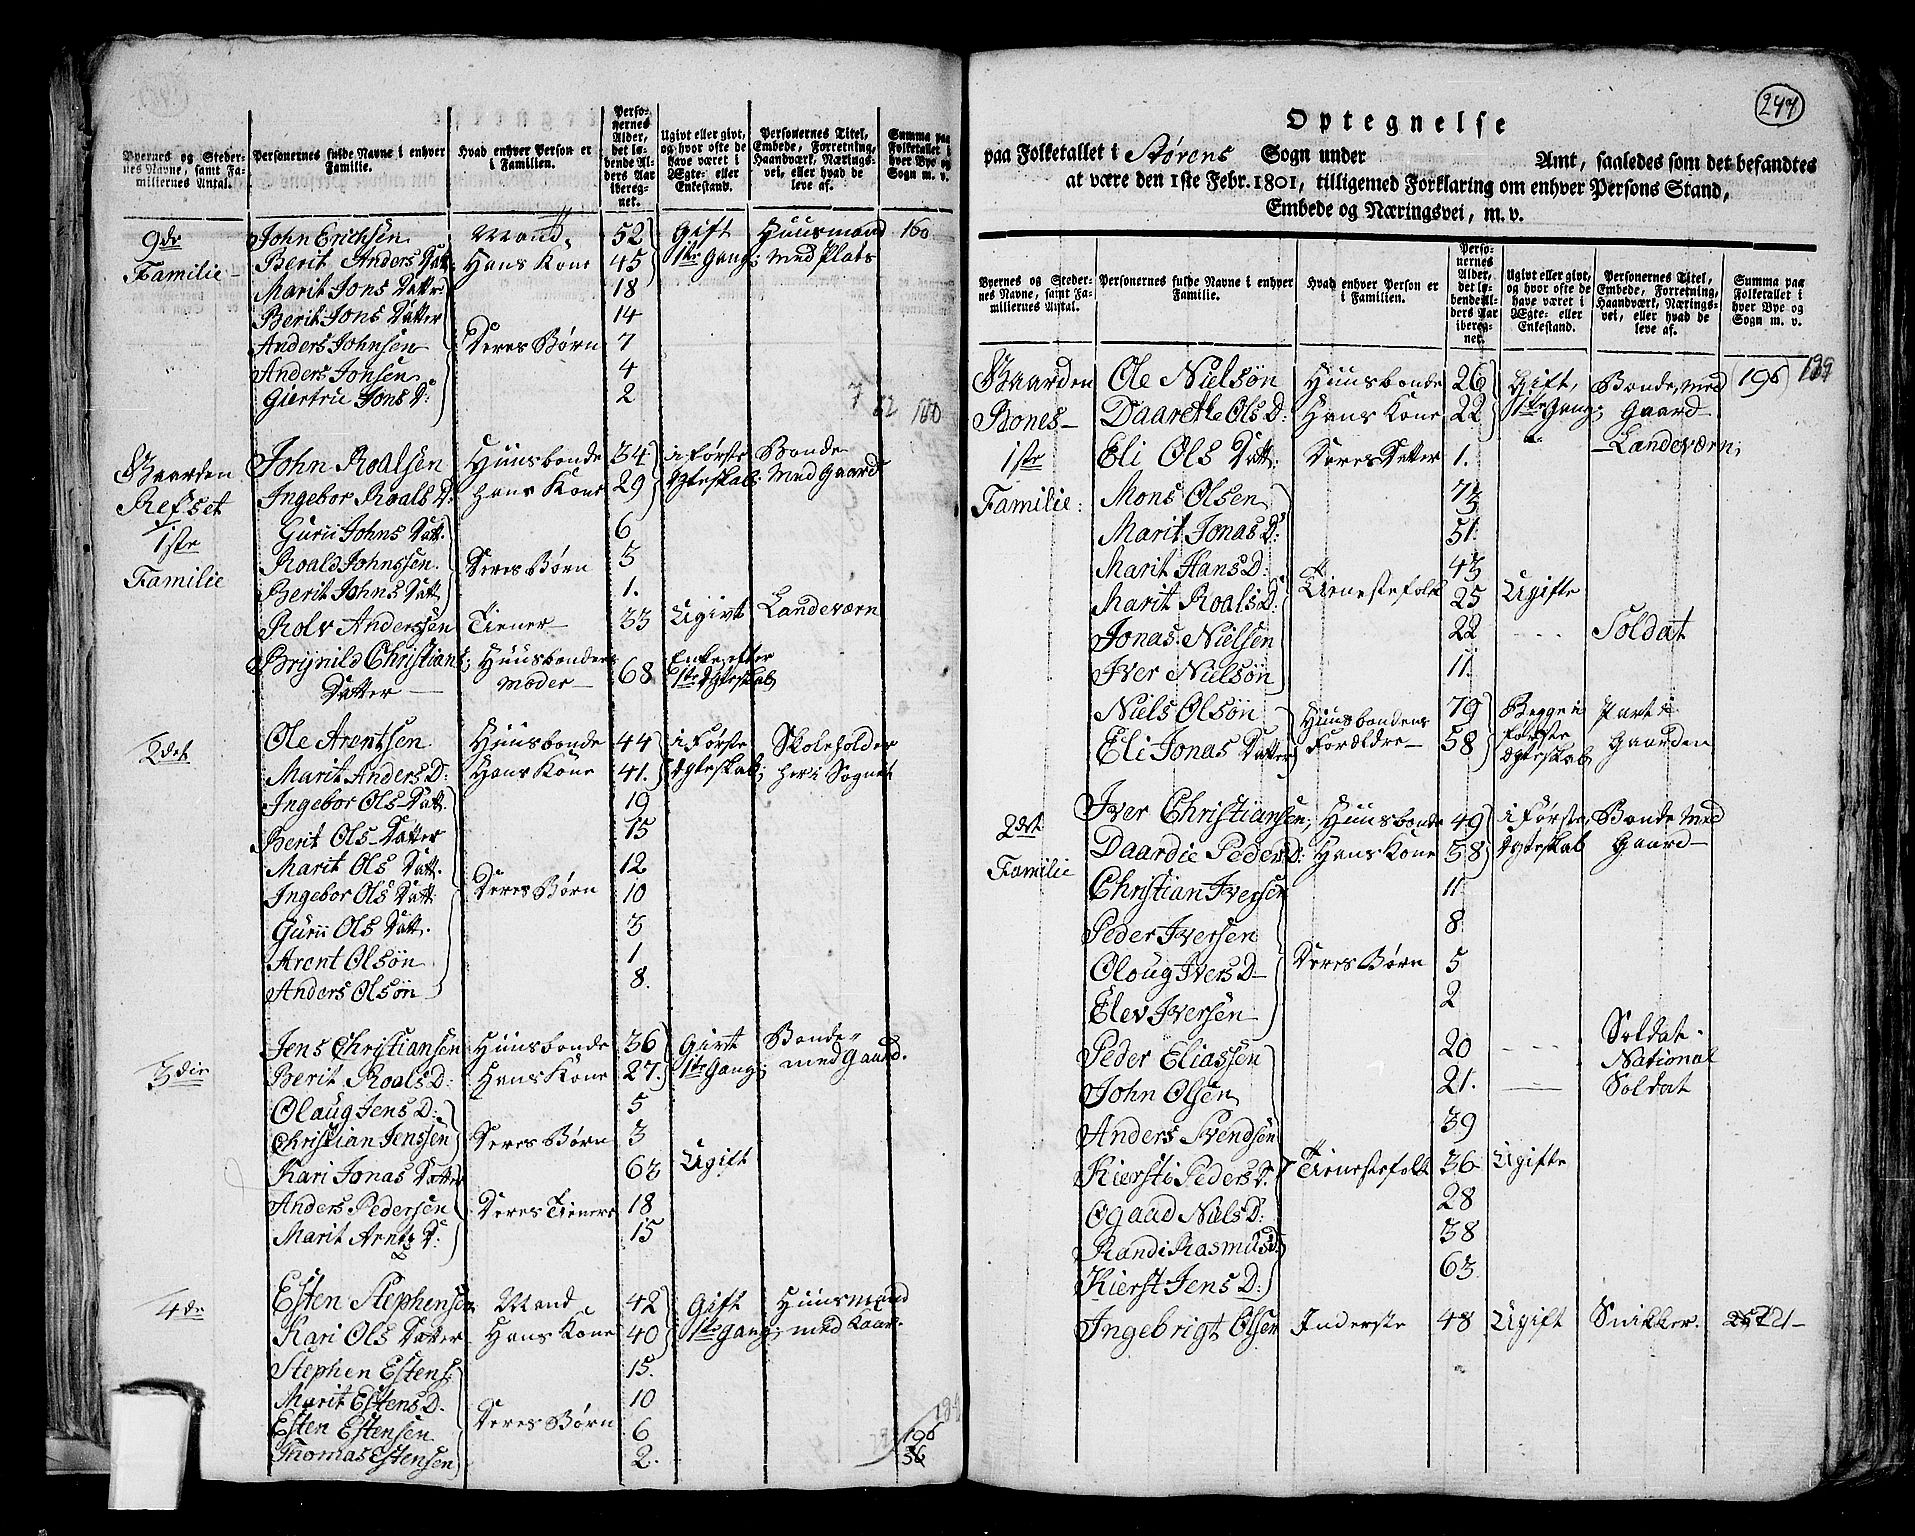 Byernes og Stedernes Navne, samt Familiernes Antal.
Personernes fulde Navne i enhver Familie.
Hvad enhver Person er i Familien.
Personernes Alder, det løbende Alders Aar iberegnet.
Ugivt eller givt, og hvor ofte de have været i Ægte- eller Enkestand.
Personernes Titel, Embede, Forretning, Haandværk, Nærings-vei, eller hvad de leve af.
Summa paa Folketallet i hver Bye og Sogn m. v.
9de John Erichsen Mand 52 Gift Huusmand 160
Familie Berit Anders Dat: Hans Kone 45 1ste Gang med Plats
Marit Jons Datter 18
Berit Jons Datter 14
Anders Johnsen Deres Børn 7
Anders Jonsen 4
Giertrue Jons D: 2
Gaarden John Roalsen Huusbonde 34 i Første Bonde
Refset Ingebor Roals D: Hans Kone 29 Ægteskab: med Gaard
1ste Gurii Johns Datt. 6
Familie Roald Johnssen 3
Berit Johns Datt. Deres Børn 1.
Rolv Anderssen Tiener 33 Ugivt Landeværn
Brynild Christians Huusbondens 68 Enke efter
Datter Moder 1ste Ægteskab
2det Ole Arentsen Huusbonde 44 i Første Skoleholder
Marit Anders D: Hans Kone 41. Ægteskab; her i Sognet
Ingebor Ols Datt. 19
Berit Ols Datter 15
Marit Ols Datt. 12
Ingebor Ols Datt Deres Børn 10
Gurii Ols Datt. 3
Arent Olsøn 1
Anders Olsøn 8.
3die Jens Christiansen Huusbonde 36 Givt Bonde
Berit Roals D: Hans Kone 27. 1ste Gang; med Gaard.
Olaug Jens D: 5
Christian Jenssen Deres Børn 3
Kari Jonas Datter 63 Ugift
Anders Pedersen Deres Tienere 18
Marit Arntz D: 15
4de Esten Stephensen Mand 42 Gift Huusmand
Kari Ols Datter Hans Kone 40 1ste Gang;
Stephen Estens: 15.
Marit Estens D. 10
Esten Estensen Deres Børn 6
Thomas Estensen 2.
196
36
247
Optegnelse
paa Folketallet i Størens Sogn under Amt, saaledes som det befandtes
at være den 1ste Febr. 1801, tilligemed Forklaring om enhver Persons Stand,
Embede og Næringsvei, m. v.
Byernes og Stedernes Navne, samt Familiernes Antal.
Personernes fulde Navne i enhver Familie.
Hvad enhver Person er i Familien.
Personernes Alder, det løbende Alders Aar iberegnet.
Ugivt eller givt, og hvor ofte de have været i Ægte- eller Enkestand.
Personernes Titel, Embede, Forretning, Haandværk, Næringsvei, eller hvad de leve af.
Summa paa Folketallet i hver Bye og Sogn m. v.
Gaarden Ole Nielsøn Huusbonde 26 Gift, Bonde, med 196
Bones Daarethe Ols D: Hans Kone 22 1ste Gang; Gaard
1ste Eli Ols Datt: Deres Datter 1. Landeværn;
Familie: Mons Olsen 73
Marit Jonas D: 51.
Marit Hans D: 43
Marit Roals D: Tienestefolk 25 Ugifte
Jonas Nielsen 22 Soldat
Iver Nielsøn 11.
Niels Olsøn Huusbondens 79 Begge i Part i
Eli Jonas Datter Forældre 58 Første Ægteskab Gaarden
2det Iver Christiansen, Huusbonde 49 i Første Bonde med
Familie Daardie Peders D: Hans Kone 58 Ægteskab Gaard
Christian Iversen 11
Peder Iversen 8
Oloug Ivers D Deres Børn 5
Elev Iversen 2
Peder Eliassen 20 Soldat
National
John Olsen 21. Soldat
Anders Svendsen 39
Kiersti Peders D. Tienestefolk 36 Ugifte
Ogaad Niels D: 28
Randi Rasmus D 38
Kierst Jens D: 63
Ingebrigt Olsen Inderste 48 Ugift Snikker. 221